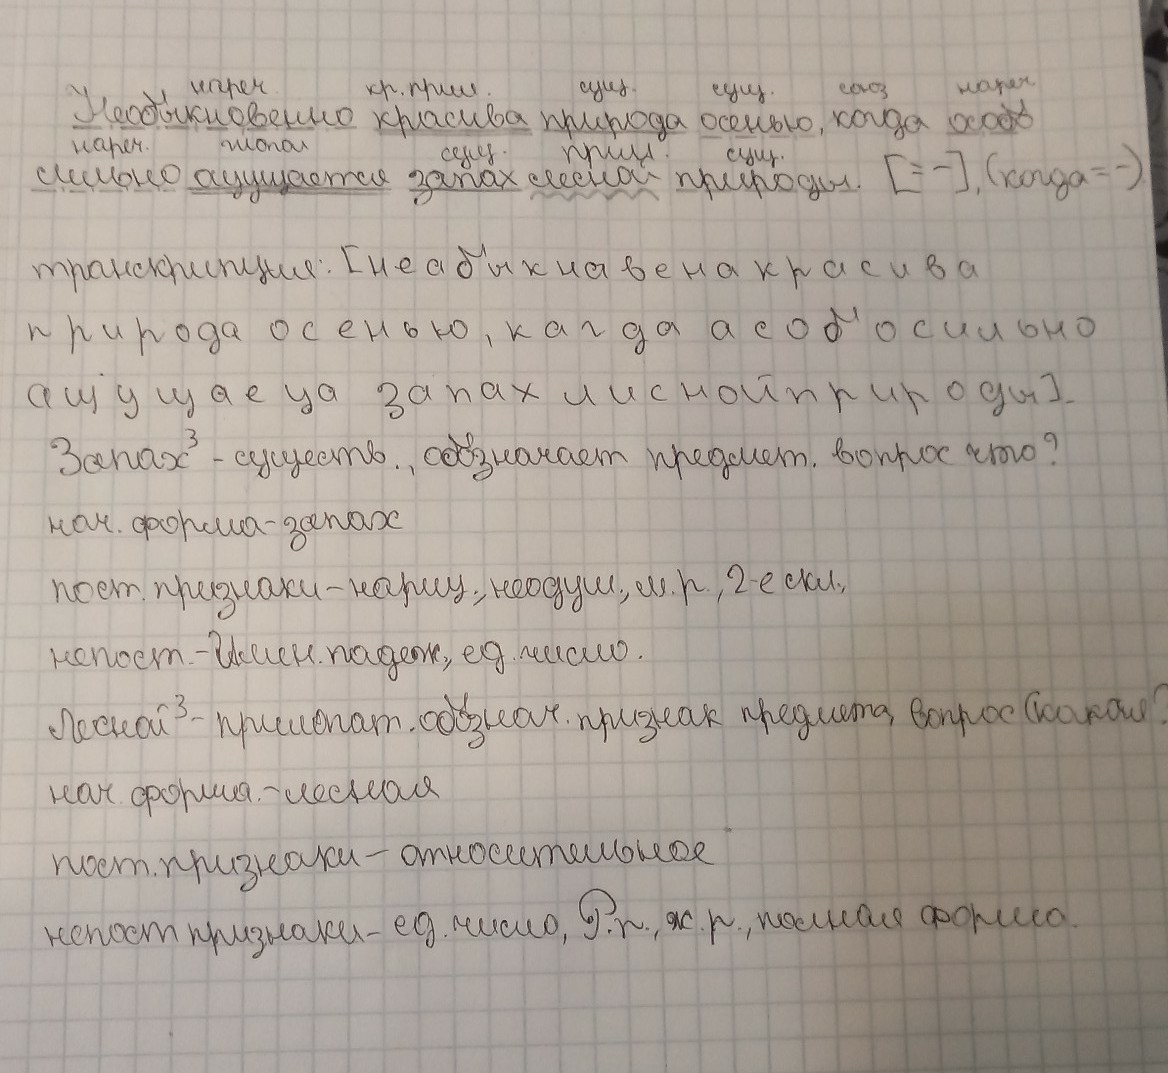 нареч. кр. прил. сущ. сущ. союз нареч
Необыкновенно красива природа осенью, когда особо
нареч. глагол сущ. прил. сущ.
сильно ощущается запах лесной природы. [= -], (когда = -)
транскрипция: [неабыкнавенакрасива
природа осенью, кагда асобосильно
ащущаеца запах лиснойприроды].
Запах³ - существ., обозначает предмет. вопрос что?
нач. форма - запах
пост. признаки - нариц., неодуш., м.р., 2-е скл.,
непост. - Имен. падеж, ед. число.
Лесной³ - прилагат. обознач. признак предмета, вопрос (какой?
нач. форма. - лесная
пост. признаки - относительное
непост признаки - ед. число, Р.п., ж.р., полная форма.